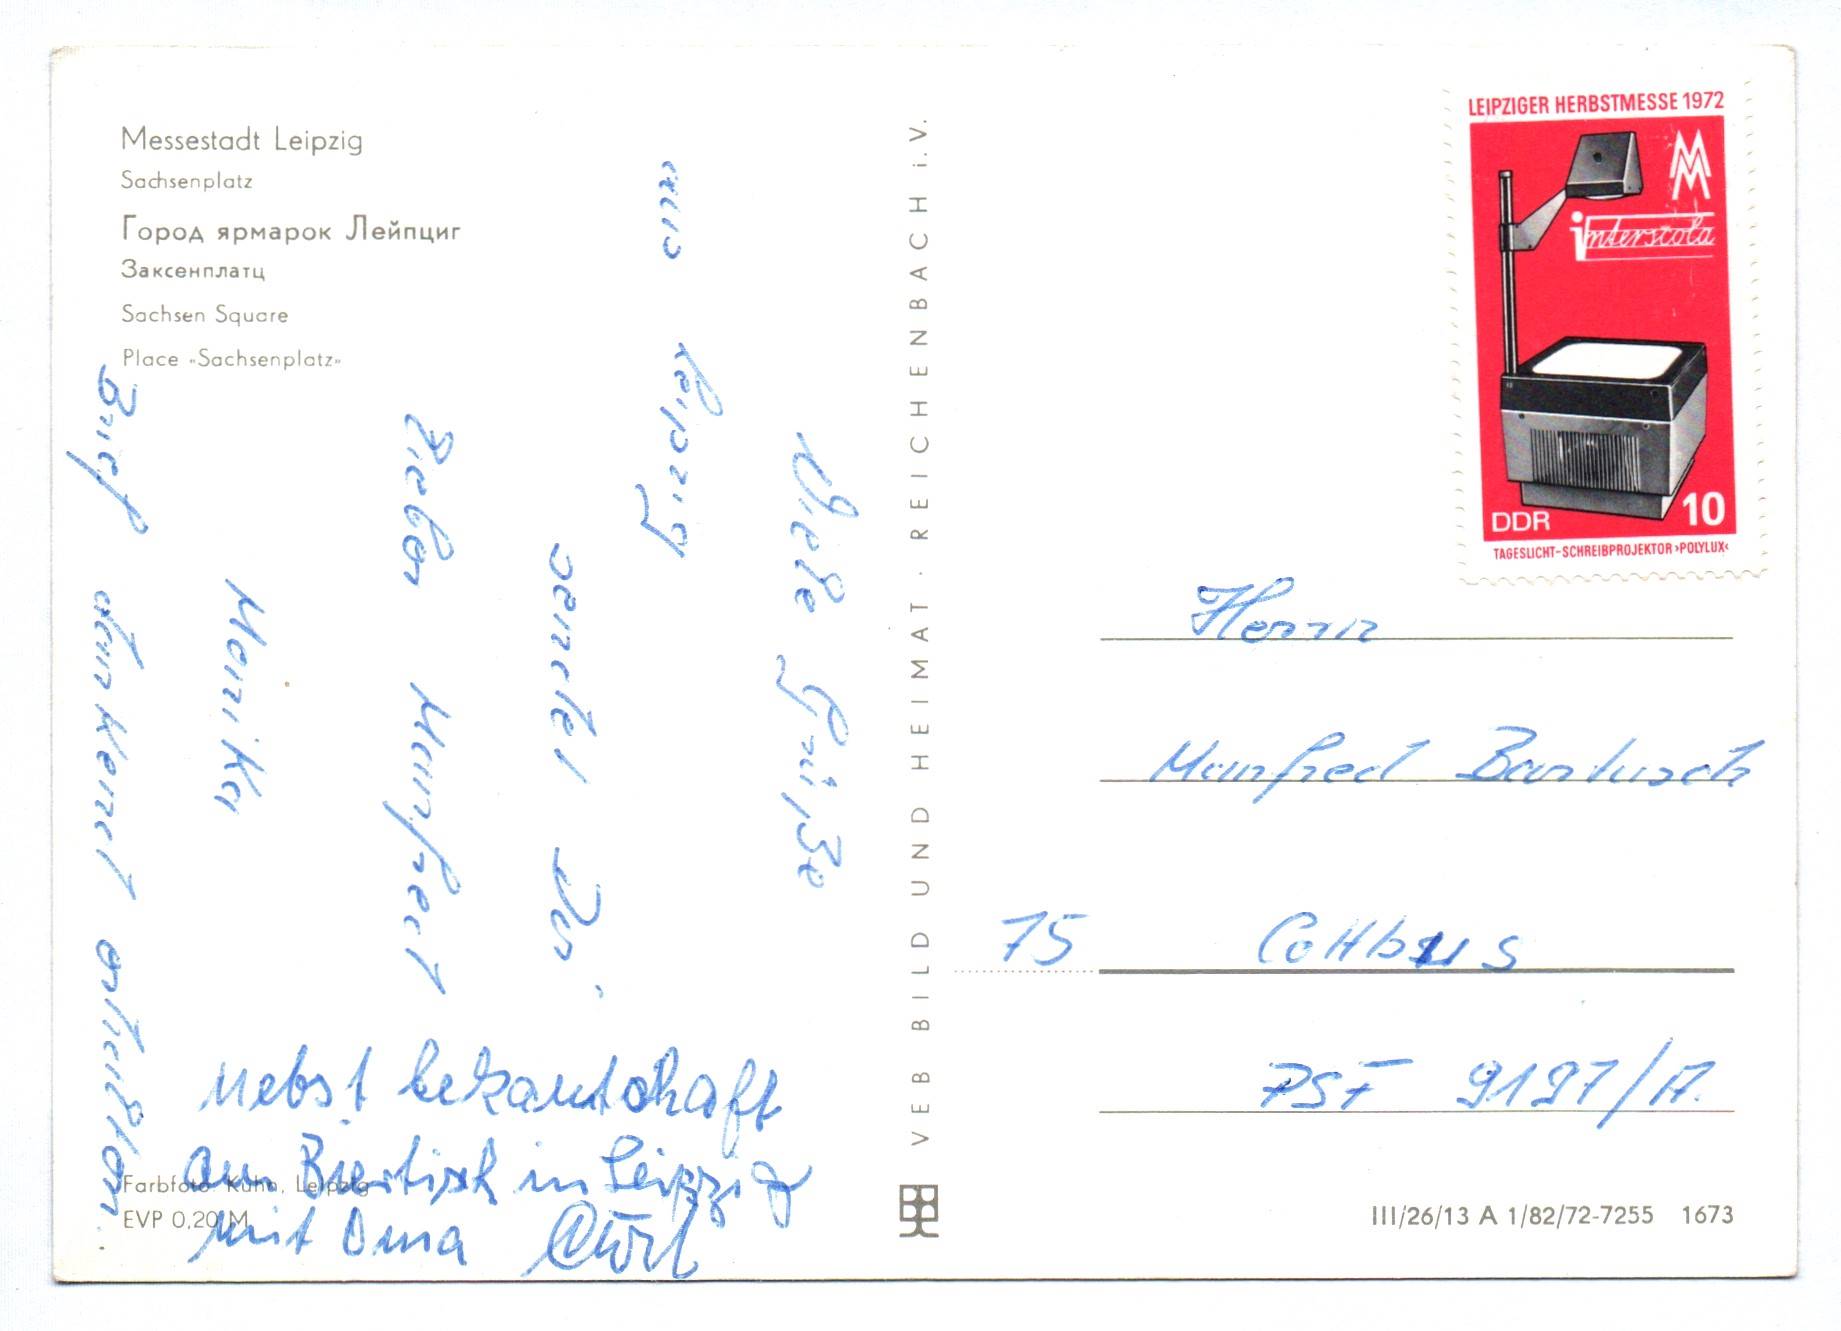 Messestadt Leipzig
Sachsenplatz
Город ярмарок Лейпциг
Заксенплатц
Sachsen Square
Place «Sachsenplatz»
Viele Grüße
aus Leipzig
sendet Dir
lieber Manfred
Monika
Brief dankend erhalten.
nebst bekantschaft
am Biertisch in Leipzig
mit Oma
Farbfoto: Kühn, Leipzig
EVP 0,20 M
VEB BILD UND HEIMAT · REICHENBACH i. V.
LEIPZIGER HERBSTMESSE 1972
MM
interscola
DDR 10
TAGESLICHT-SCHREIBPROJEKTOR ›POLYLUX‹
Herrn
Manfred Bartusch
75 Cottbus
PSF 9197/A.
III/26/13 A 1/82/72-7255 1673